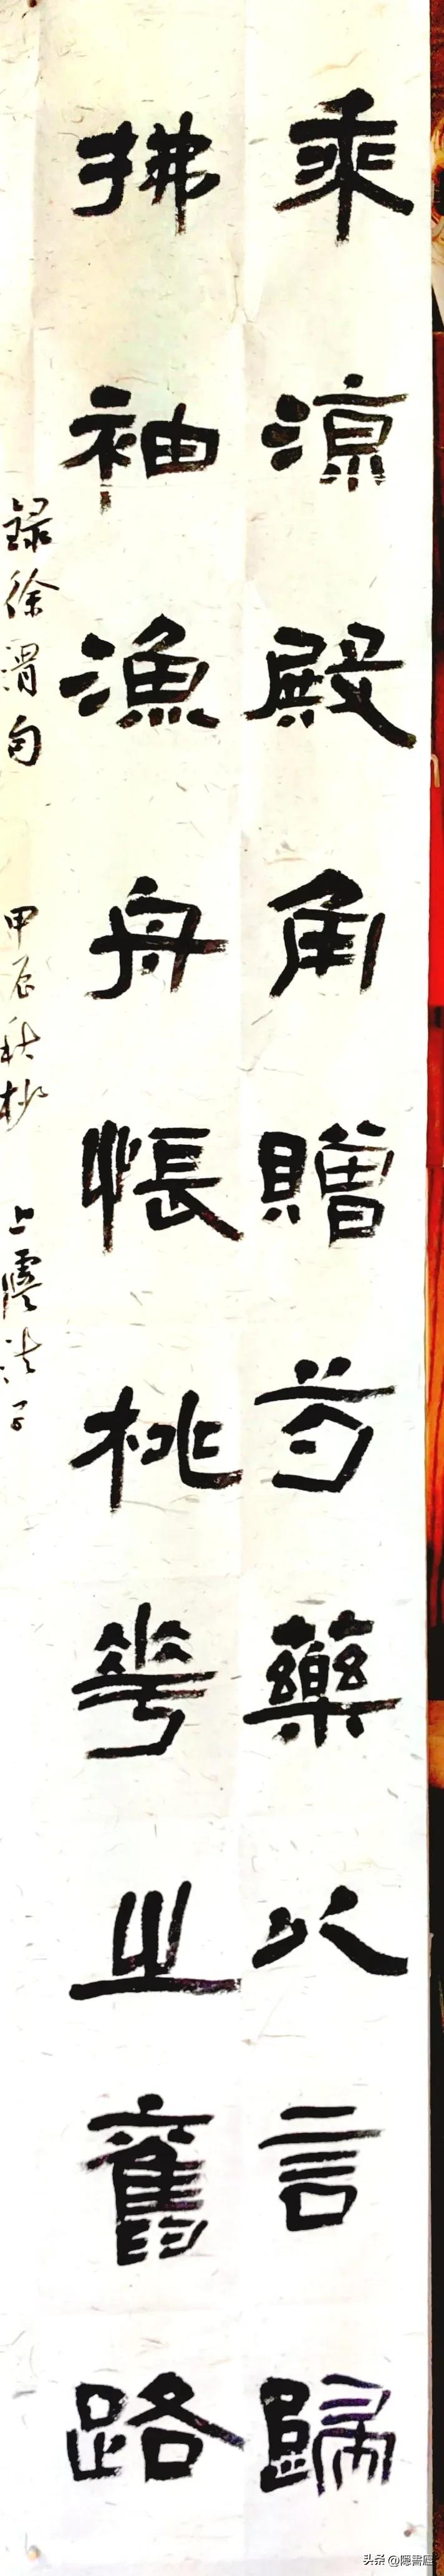 乘涼殿角贈芍藥以言歸
拂袖漁舟悵桃華之舊路
錄徐渭句 甲辰秋杪 上虞法子
头条 @隱書廬